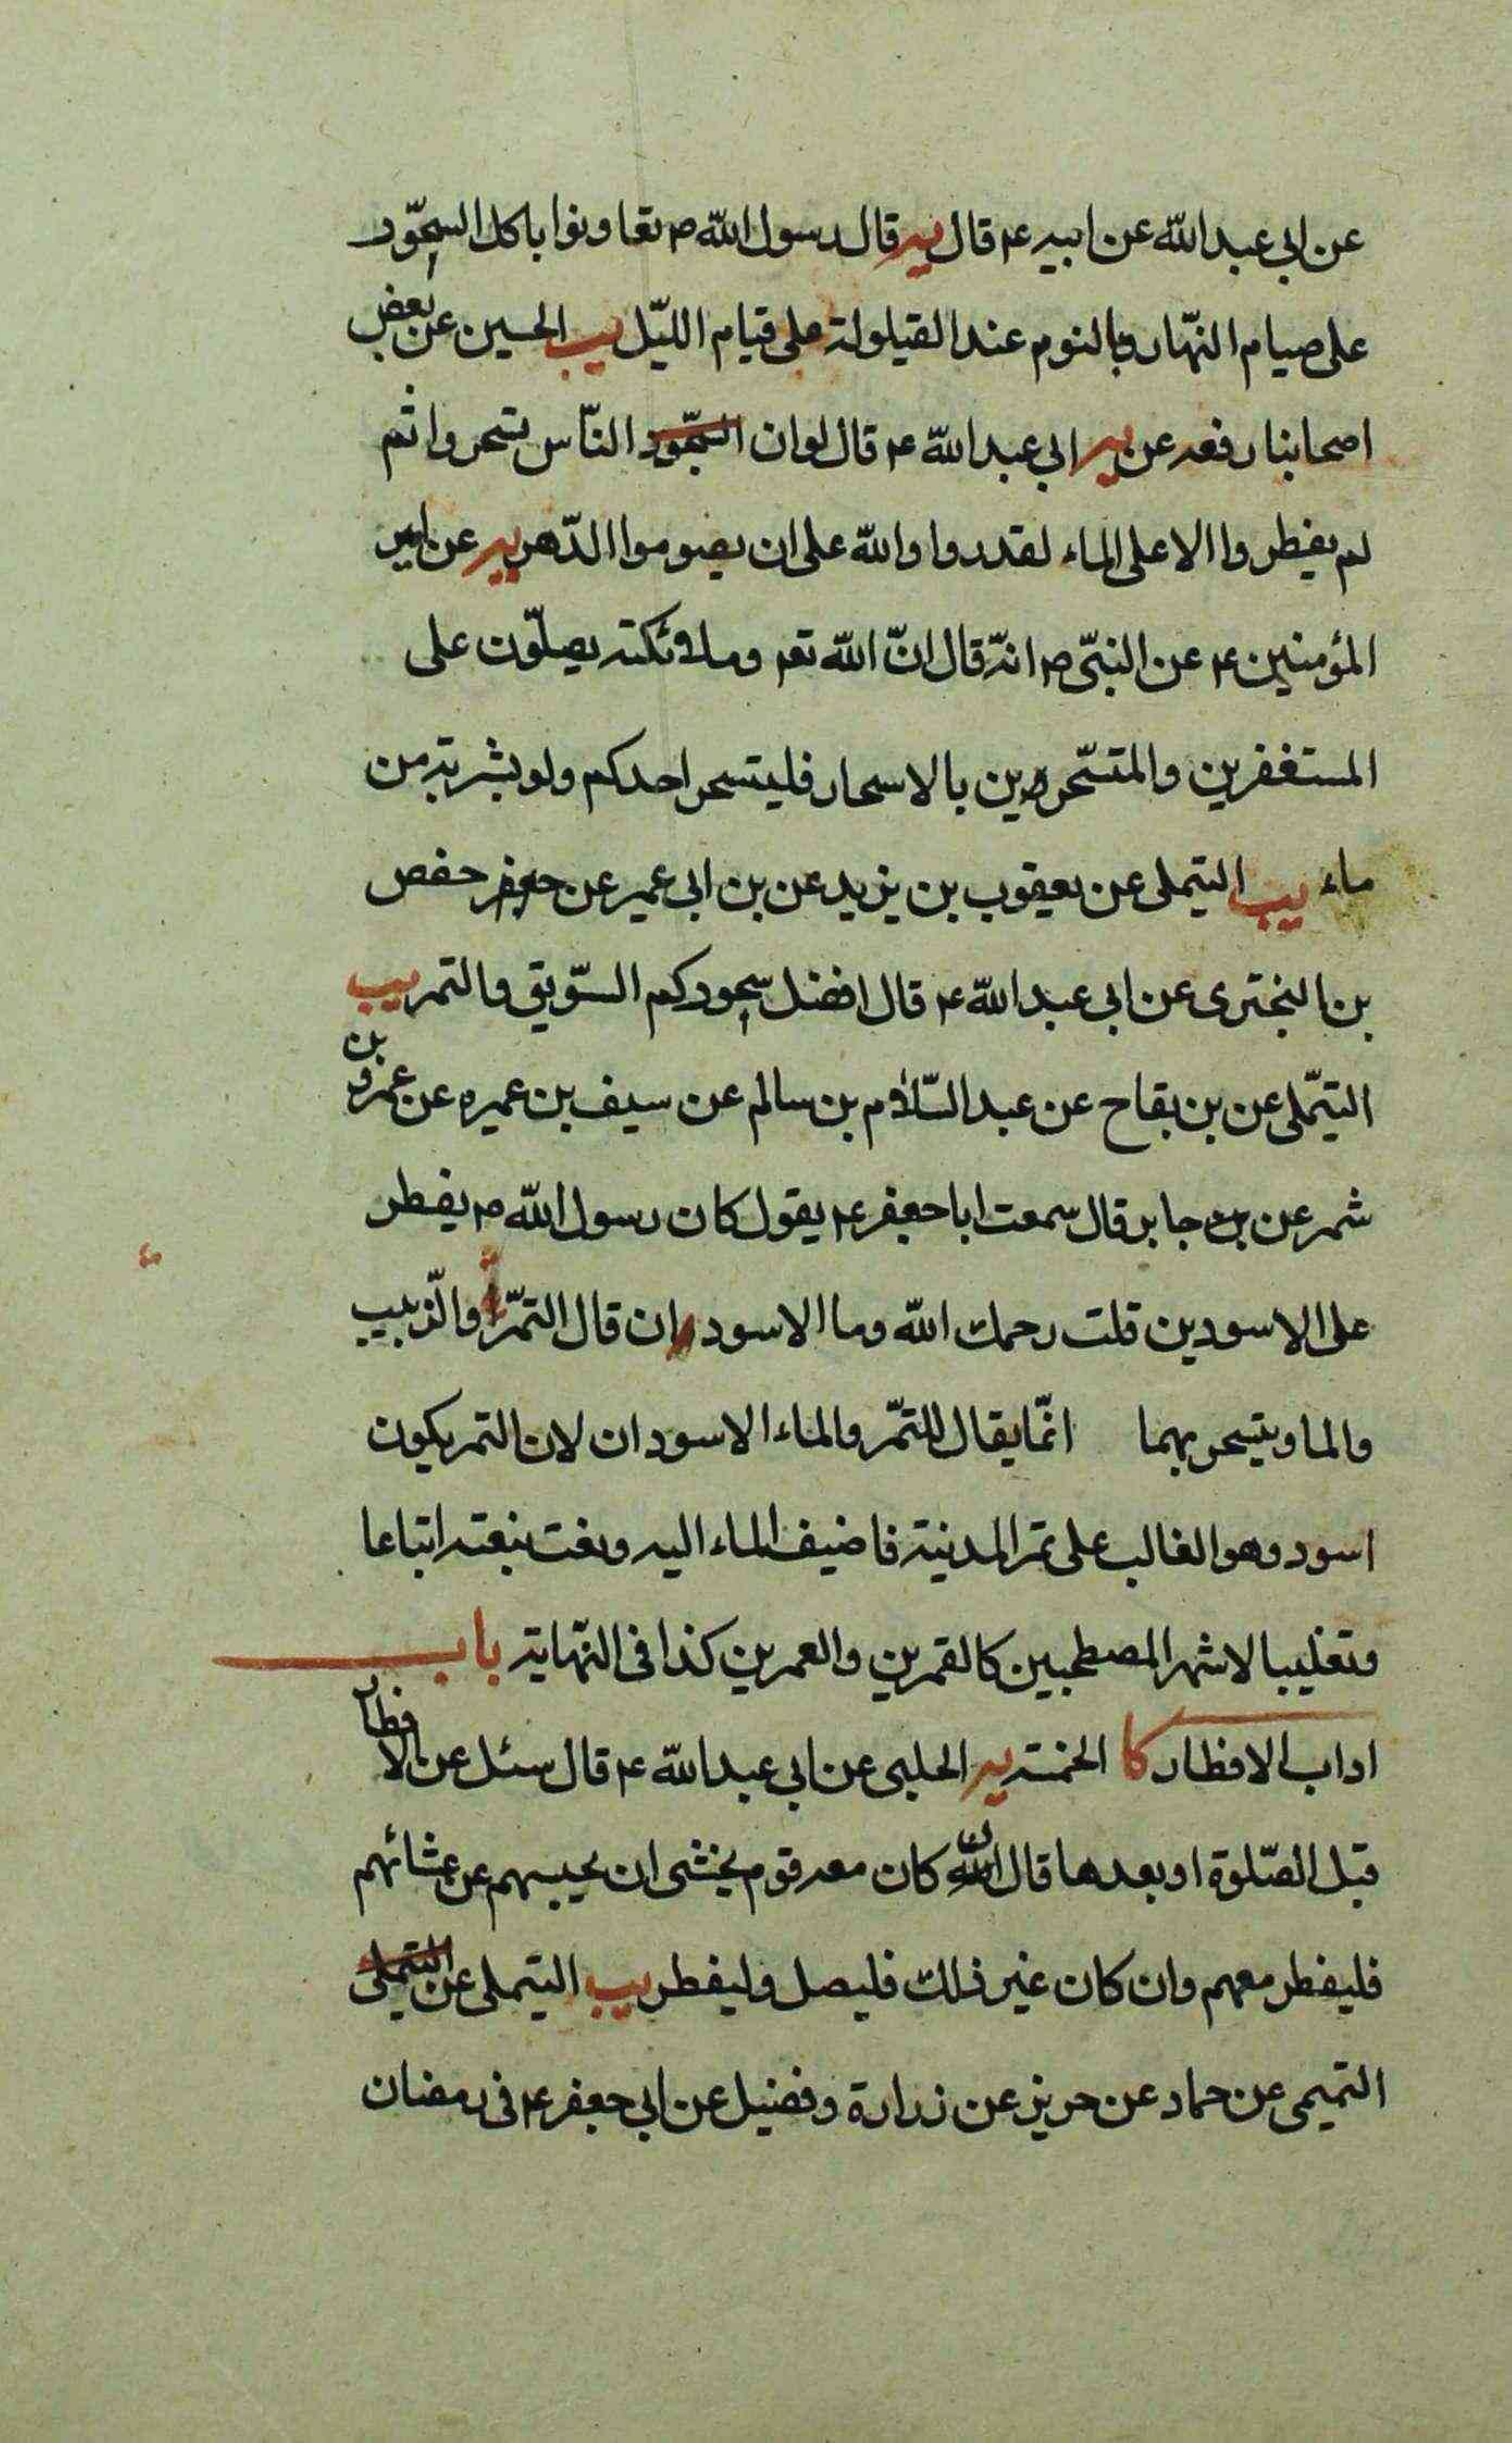 عن ابی عبد اللّه عن ابیه ع قال یه قال رسول اللّه ص تعاونوا باکل السحّور
علی صیام النّهار وبالنوم عند القیلولة علی قیام اللیّل یب الحسین عن بعض
اصحابنا رفعه عن یه ابی عبد اللّه ع قال لوان السّحّور النّاس تسحروا ثم
لم یفطروا الا علی الماء لقدروا واللّه علی ان یصوموا الدّهر یه عن امیر
المؤمنین ع عن النبّی ص انّه قال انّ اللّه تعم وملائکته یصلّون علی
المستغفرین والمتسّحرین بالاسحار فلیتسحر احدکم ولو بشربة من
ماء یب التیملی عن یعقوب بن یزید عن بن ابی عمیر عن جعفر حفص
بن البختری عن ابی عبد اللّه ع قال افضل سحورکم السّویق والتمر یب
التیمّلی عن بن بقاح عن عبد السّلام بن سالم عن سیف بن عمیره عن عمرو بن
شمر عن بن جابر قال سمعت ابا جعفر ع یقول کان رسول اللّه ص یفطر
علی الاسودین قلت رحمك اللّه وما الاسودان قال التمّر والزّبیب
والما ویتسحر بهما انمّا یقال للتمّر والماء الاسودان لان التمر یکون
اسود وهو الغالب علی تمر المدینة فاضیف الماء الیه ونعت بنعته اتباعا
وتغلیبا لاشهر المصطحبین کالقمرین والعمرین کذا فی النّهایة باب
اداب الافطار کا الخمسة یه الحلبی عن ابی عبد اللّه ع قال سئل عن الافطار
قبل الصّلوة او بعدها قال ان کان معه قوم یخشی ان یحبسهم عن عشائهم
فلیفطر معهم وان کان غیر ذلك فلیصل ولیفطر یب التیملی عن التیملی
التمیمی عن حماد عن حریز عن زرارة وفضیل عن ابی جعفر ع فی رمضان